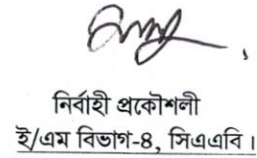 নির্বাহী প্রকৌশলী
ই/এম বিভাগ-৪, সিএএবি।